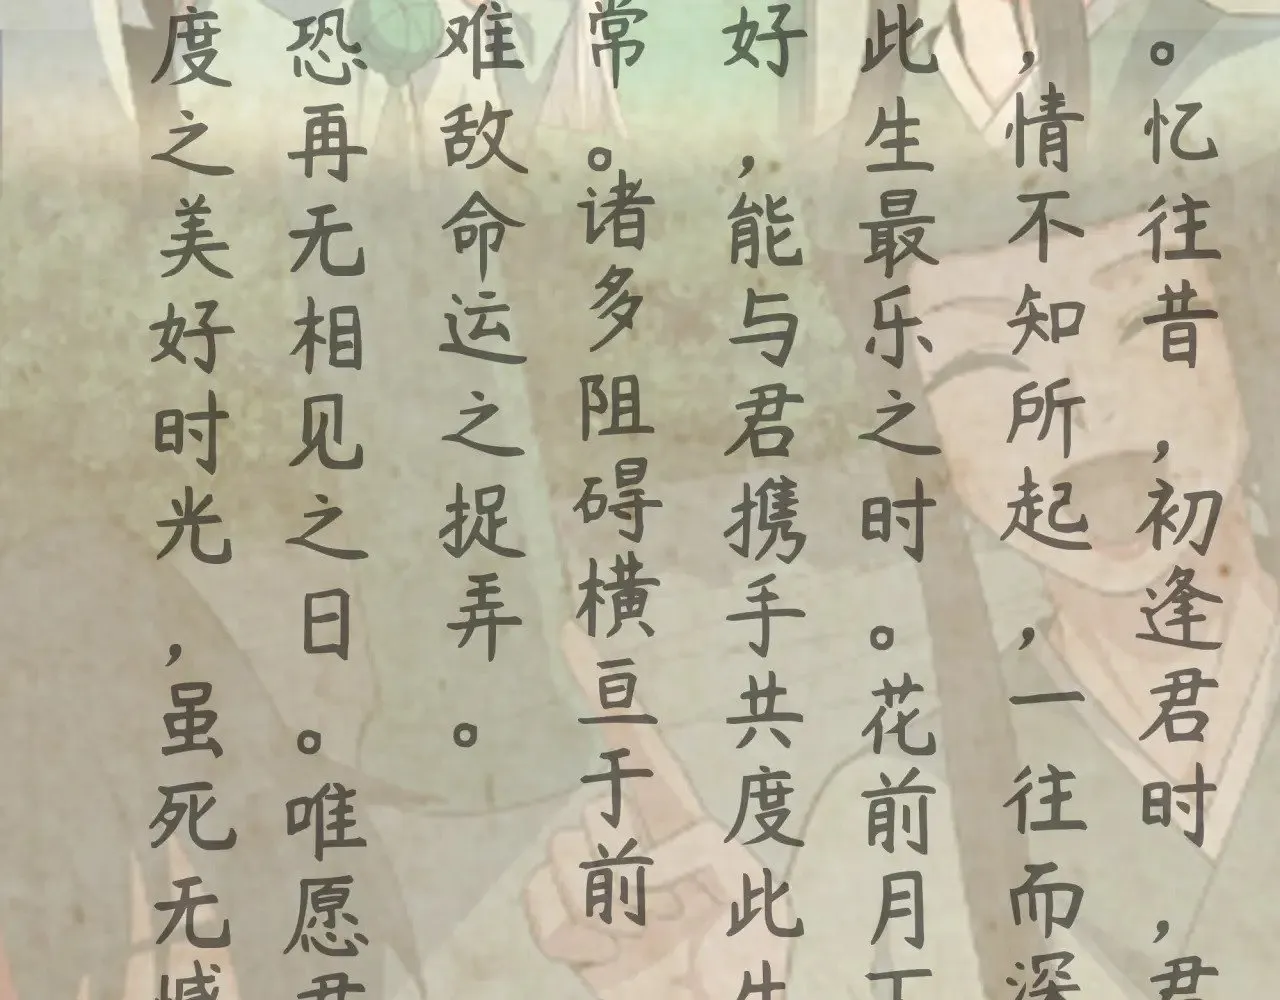 。忆往昔，初逢君时，君
，情不知所起，一往而深
此生最乐之时。花前月下
好，能与君携手共度此生
常。诸多阻碍横亘于前
难敌命运之捉弄。
恐再无相见之日。唯愿君
度之美好时光，虽死无憾